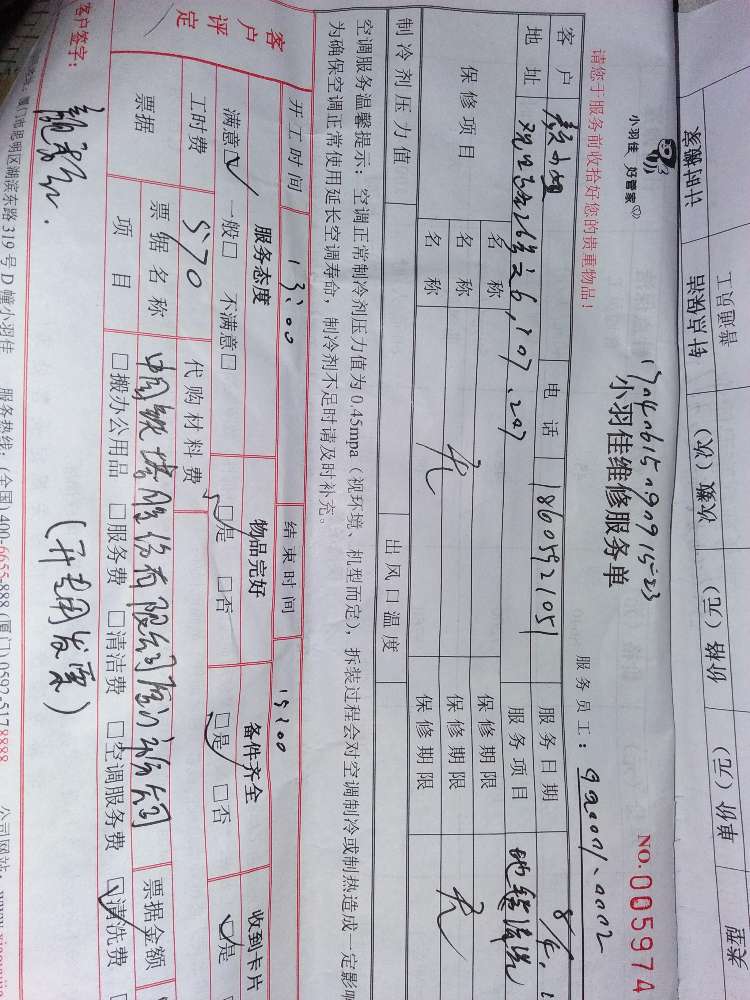 计时搬家 普通员工 钟点保洁 次数（次） 价格（元） 单价（元） 类型
小羽佳 好管家
小羽佳维修服务单
NO:0005974
请您于服务前收拾好您的贵重物品！
服务员工：
客户 颜小姐 电话 18605921051 服务日期
地址 服务项目 地毯清洗
保修项目 名称 无 保修期限 无
名称 保修期限
名称 保修期限
制冷剂压力值 出风口温度
空调服务温馨提示：空调正常制冷剂压力值为0.45mpa（视环境、机型而定），拆装过程会对空调制冷或制热造成一定影响
为确保空调正常使用延长空调寿命，制冷剂不足时请及时补充。
开工时间 13:00 结束时间 15:00
客户评定 服务态度 物品完好 备件齐全 收到卡片
满意☑ 一般□ 不满意□ ☑是 □否 ☑是 □否 ☑是
工时费 570 代购材料费
票据 票据名称 票据金额
项目 □搬办公用品 □服务费 □清洁费 □空调服务费 ☑清洗费
（开专用发票）
客户签字：
厦门市思明区湖滨东路319号D幢小羽佳 服务热线：(全国)400-6655-888 (厦门)0592-5178888 公司网站：